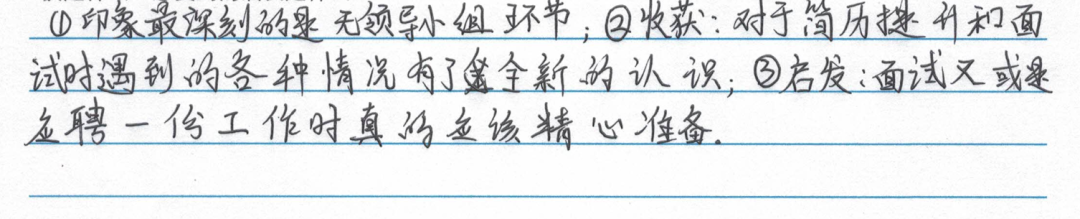 ①印象最深刻的是无领导小组环节；②收获：对于简历提升和面
试时遇到的各种情况有了全新的认识；③启发：面试又或是
应聘一份工作时真的应该精心准备.